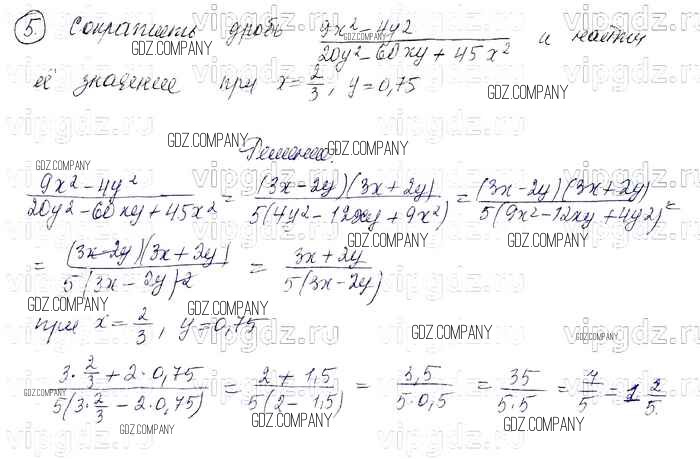 5. Сократить дробь \frac{9x²-4y²}{20y²-60xy+45x²} и найти
её значение при x=\frac{2}{3}, y=0,75
Решение.
\frac{9x²-4y²}{20y²-60xy+45x²} = \frac{(3x-2y)(3x+2y)}{5(4y²-12xy+9x²)} = \frac{(3x-2y)(3x+2y)}{5(9x²-12xy+4y2)²} =
= \frac{(3x-2y)(3x+2y)}{5(3x-2y)2} = \frac{3x+2y}{5(3x-2y)}
при x=\frac{2}{3}, y=0,75
\frac{3·\frac{2}{3}+2·0,75}{5(3·\frac{2}{3}-2·0,75)} = \frac{2+1,5}{5(2-1,5)} = \frac{3,5}{5·0,5} = \frac{35}{5·5} = \frac{7}{5} = 1\frac{2}{5}.
GDZ.COMPANY
vipgdz.ru